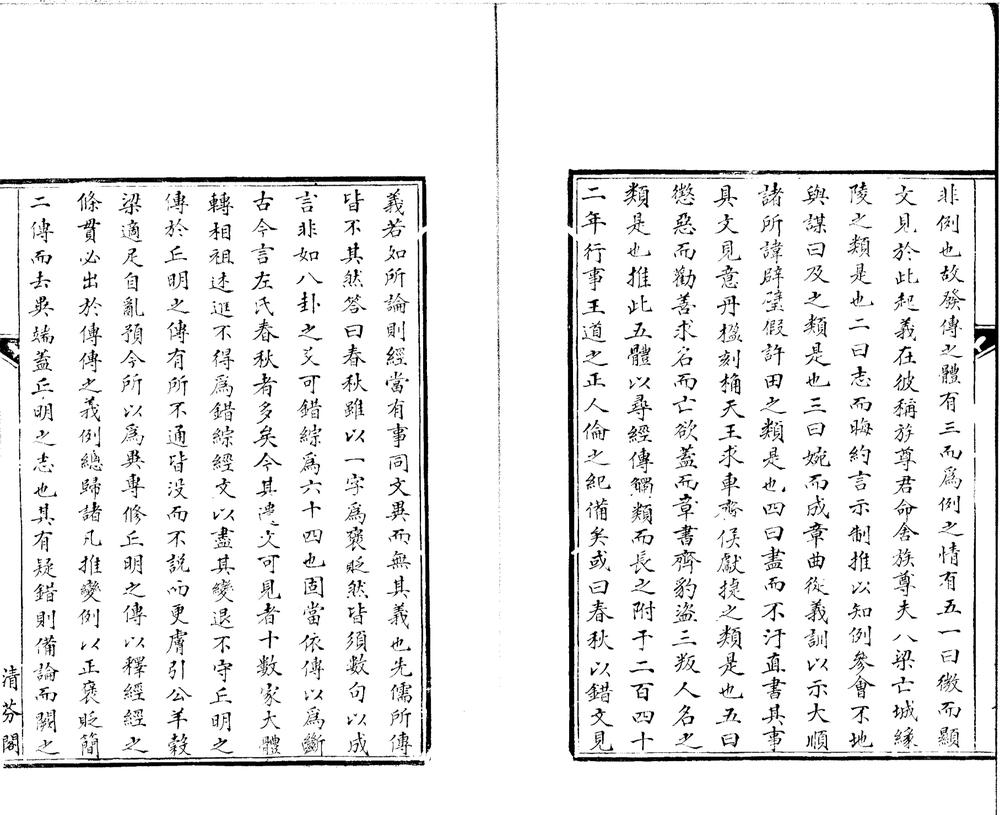 非例也故發傳之體有三而爲例之情有五一曰微而顯
文見於此起義在彼稱族尊君命舍族尊夫人梁亡城緣
陵之類是也二曰志而晦約言示制推以知例參會不地
與謀曰及之類是也三曰婉而成章曲從義訓以示大順
諸所諱辟璧假許田之類是也四曰盡而不汙直書其事
具文見意丹楹刻桷天王求車齊侯獻捷之類是也五曰
懲惡而勸善求名而亡欲蓋而章書齊豹盜三叛人名之
類是也推此五體以尋經傳觸類而長之附于二百四十
二年行事王道之正人倫之紀備矣或曰春秋以錯文見
義若如所論則經當有事同文異而無其義也先儒所傳
皆不其然答曰春秋雖以一字爲襃貶然皆須數句以成
言非如八卦之爻可錯綜爲六十四也固當依傳以爲斷
古今言左氏春秋者多矣今其遺文可見者十數家大體
轉相祖述進不得爲錯綜經文以盡其變退不守丘明之
傳於丘明之傳有所不通皆没而不說而更膚引公羊榖
梁適足自亂預今所以爲異專修丘明之傳以釋經經之
條貫必出於傳傳之義例總歸諸凡推變例以正襃貶簡
二傳而去異端蓋丘明之志也其有疑錯則備論而闕之
清芬閣